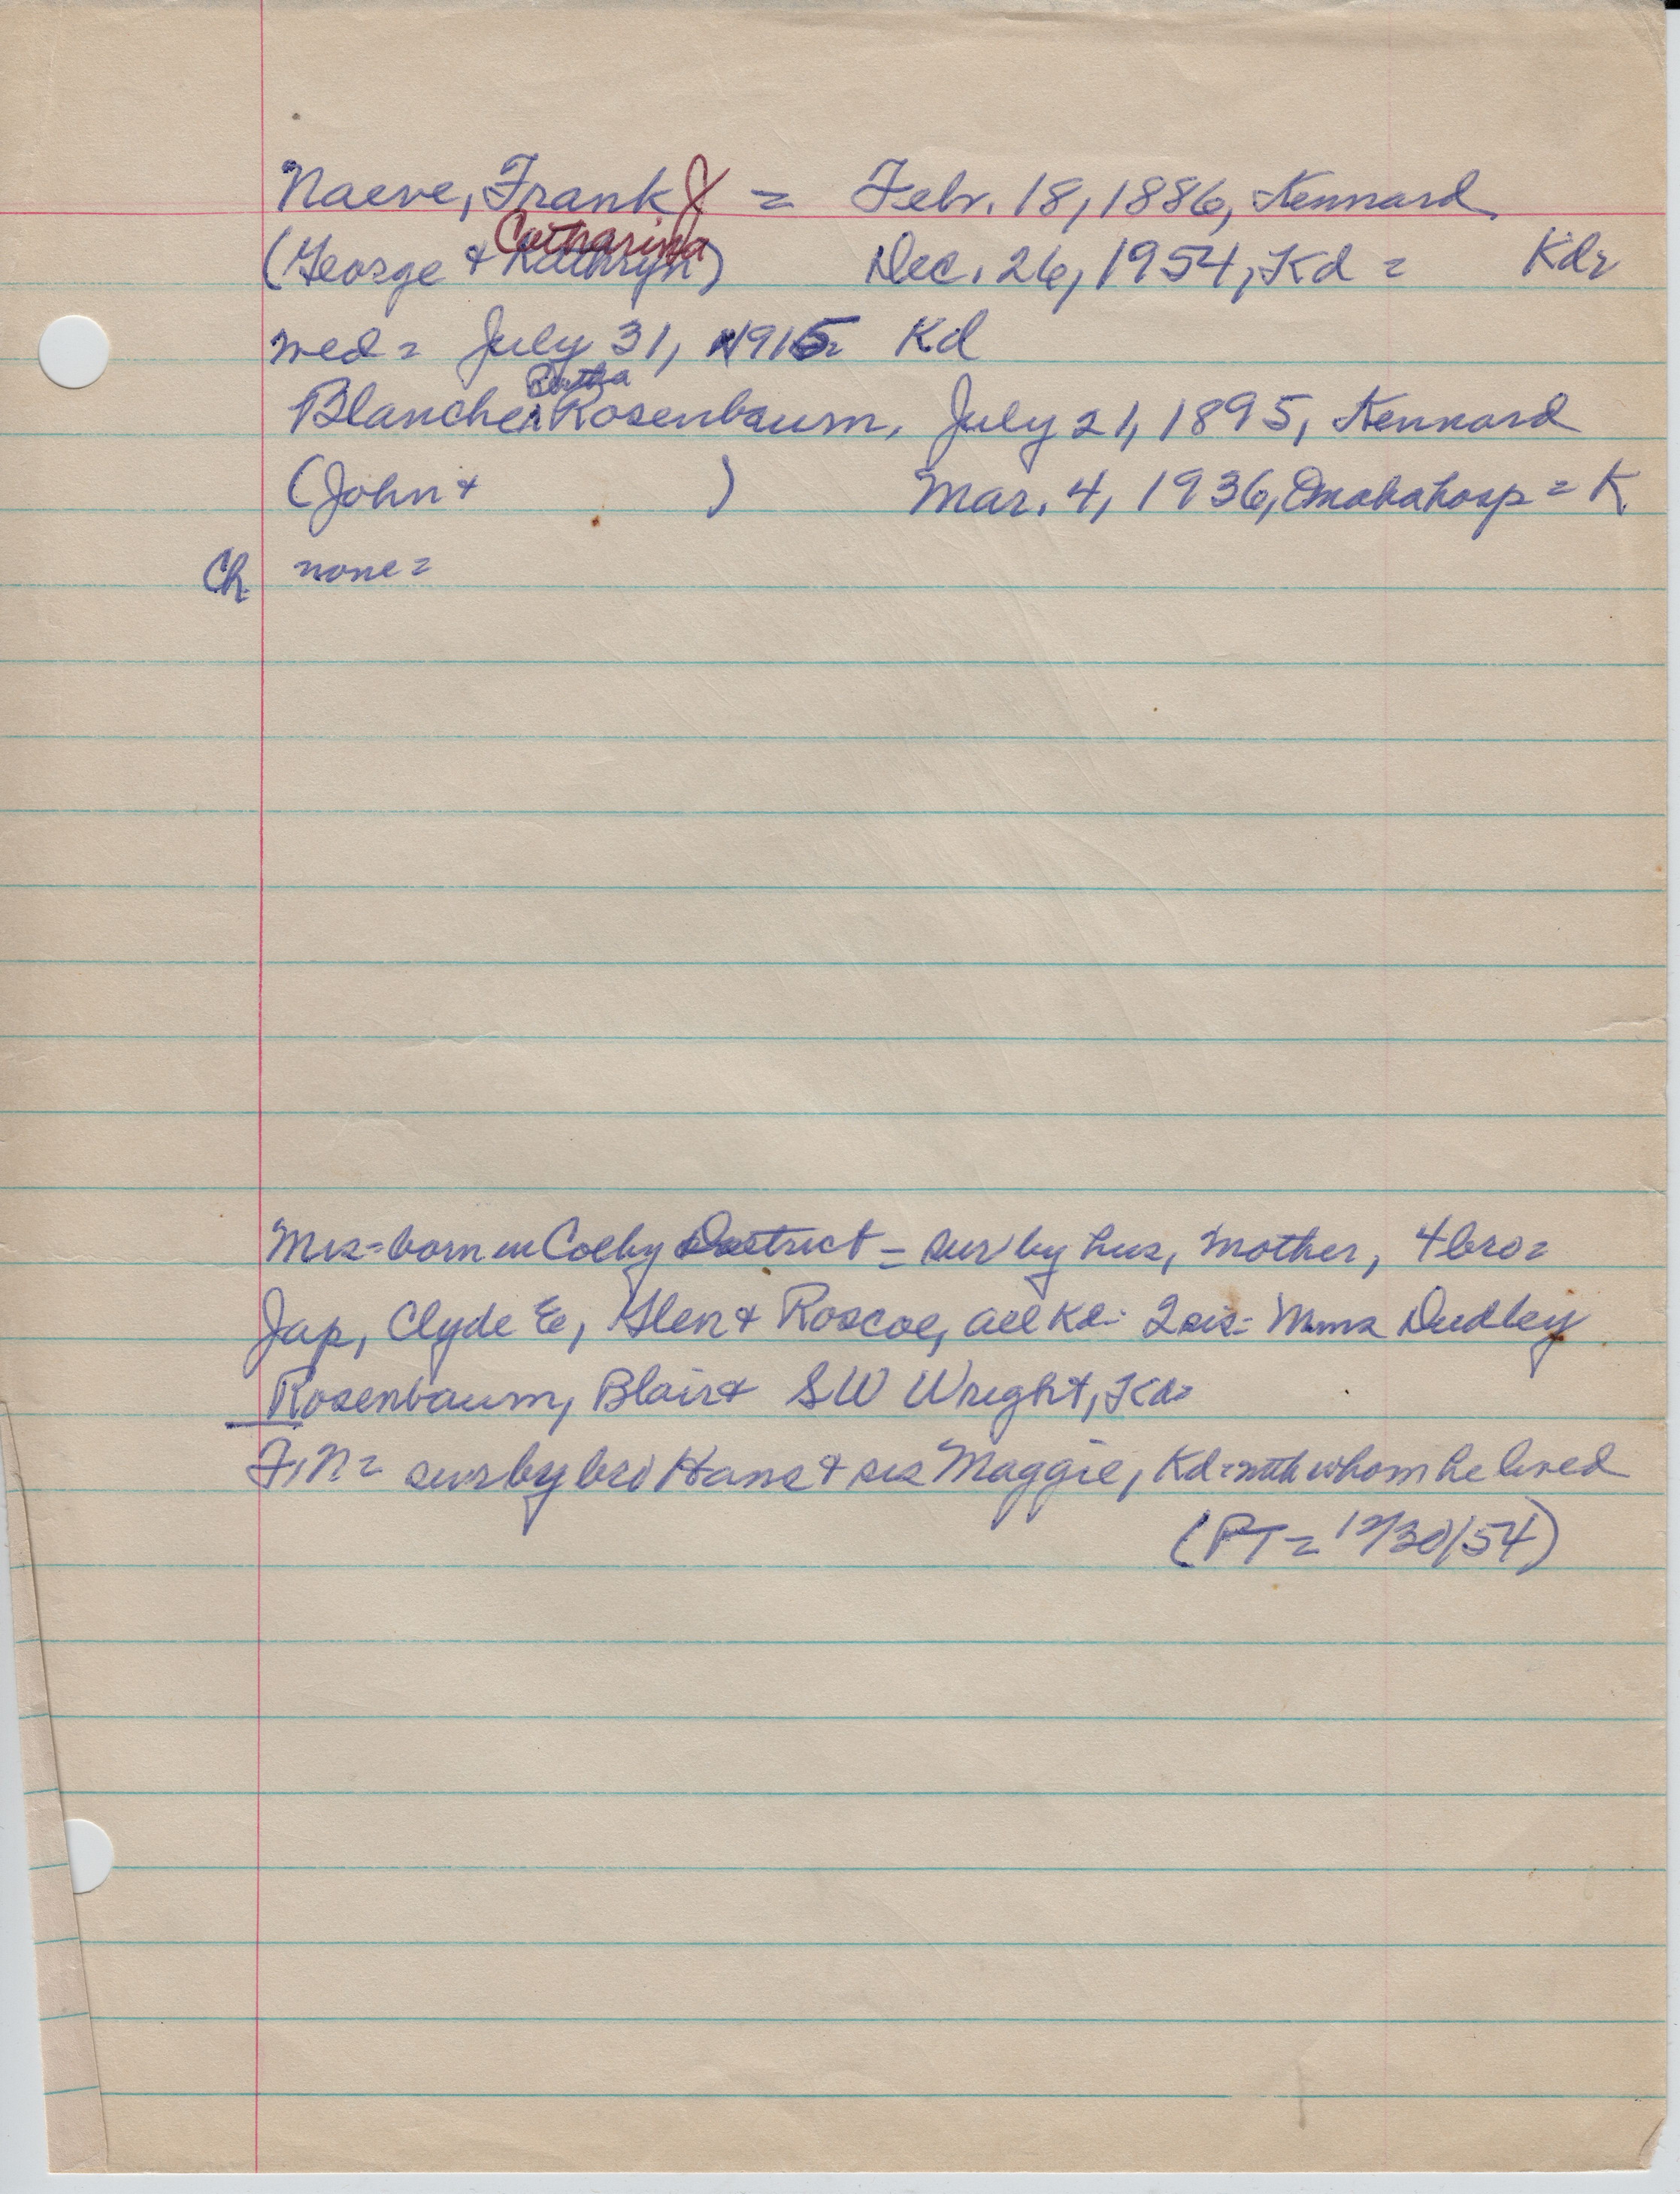 Naeve, Frank J = Febr. 18, 1886, Kennard
Catharina
(George + Kathryn) Dec. 26, 1954, Kd = Kd=
wed = July 31, 1915 = Kd
Bertha
Blanche Rosenbaum, July 21, 1895, Kennard
(John + ) Mar. 4, 1936, Omaha hosp = K
Ch none =
Mrs = born in Colby District = sur by hus, mother, 4 bro =
Jap, Clyde E, Glen + Roscoe, all Kd = 2 sis = Mmes Dudley
Rosenbaum, Blair + SW Wright, Kd =
F.N = sur by bro Hans + sis Maggie, Kd = with whom he lived
(PT = 12/30/54)